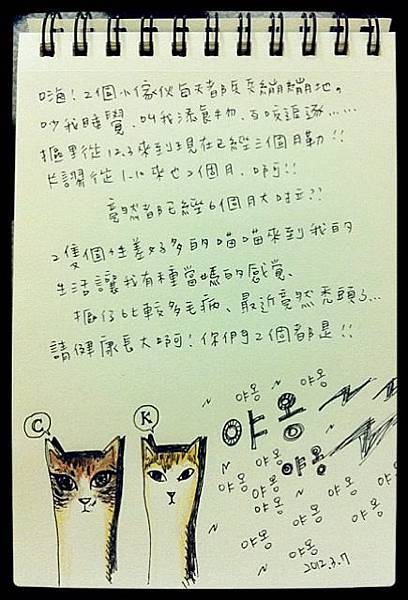 嗨！2個小傢伙每天都蹦蹦繃繃地。
吵我睡覺、叫我添食物、互咬追逐......
從12.3來到現在已經三個月勒!!
從1.10來也2個月.啊!!
竟然都已經6個月大啦??
2隻個性差好多的喵喵來到我的
生活讓我有種當媽的感覺、
比較多毛病、最近竟然禿頭了...
請健康長大啊!你們2個都是!!
~ 야옹 ~ 야옹
야옹 ~
야옹
야옹 야옹
야옹 야옹 야옹 야옹
야옹 야옹
야옹 야옹
야옹
C K
2012.3.7